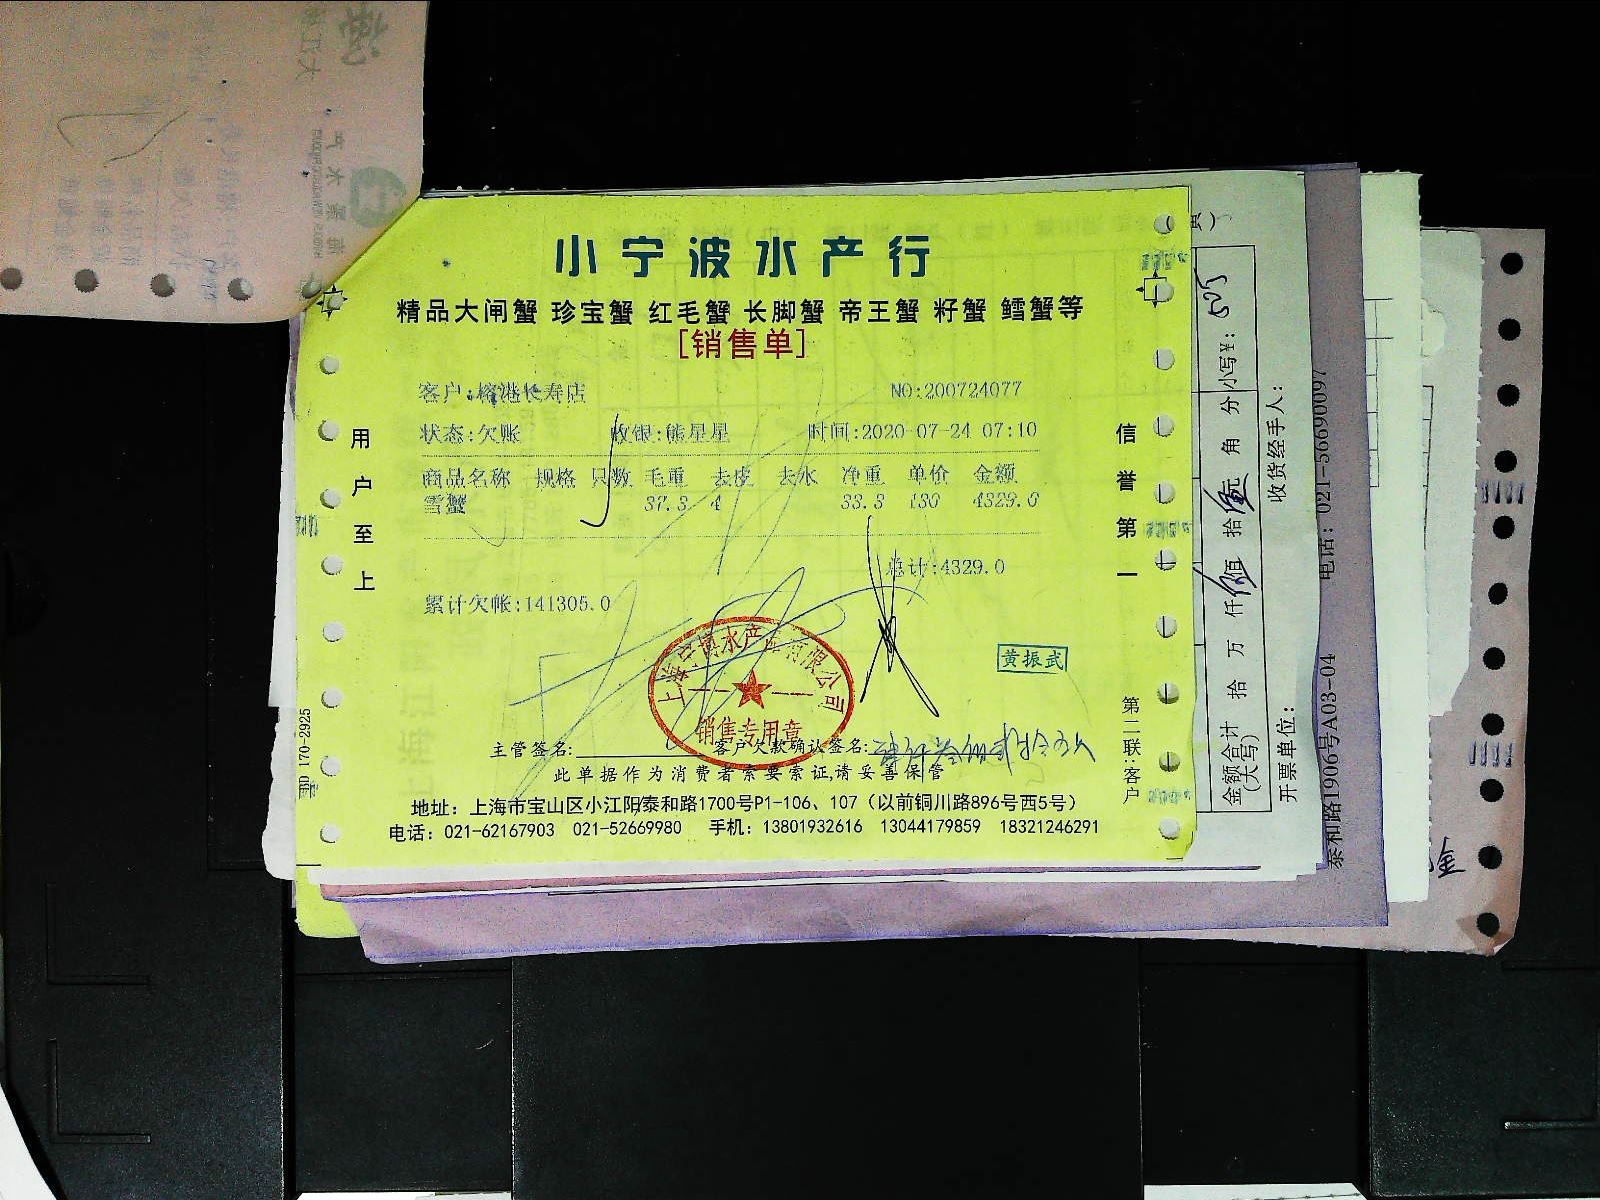 小宁波水产行
精品大闸蟹 珍宝蟹 红毛蟹 长脚蟹 帝王蟹 籽蟹 鳕蟹等
[销售单]
客户:榕港长寿店 NO:200724077
状态:欠账 收银:熊星星 时间:2020-07-24 07:10
商品名称 规格 只数 毛重 去皮 去水 净重 单价 金额
雪蟹 37.3 4 33.3 130 4329.0
总计:4329.0
累计欠帐:141305.0
上海宁博水产品有限公司
销售专用章
黄振武
主管签名: 客户欠款确认签名:
此单据作为消费者索要索证,请妥善保管
地址：上海市宝山区小江阳泰和路1700号P1-106、107（以前铜川路896号西5号）
电话：021-62167903 021-52669980 手机：13801932616 13044179859 18321246291
用户至上
信誉第一
第二联:客户
170-2925
金额合计(大写) 拾 万 仟 佰 拾 元 角 分 小写¥：505
开票单位： 收货经手人：
泰和路1906号A03-04 电话：021-56690097